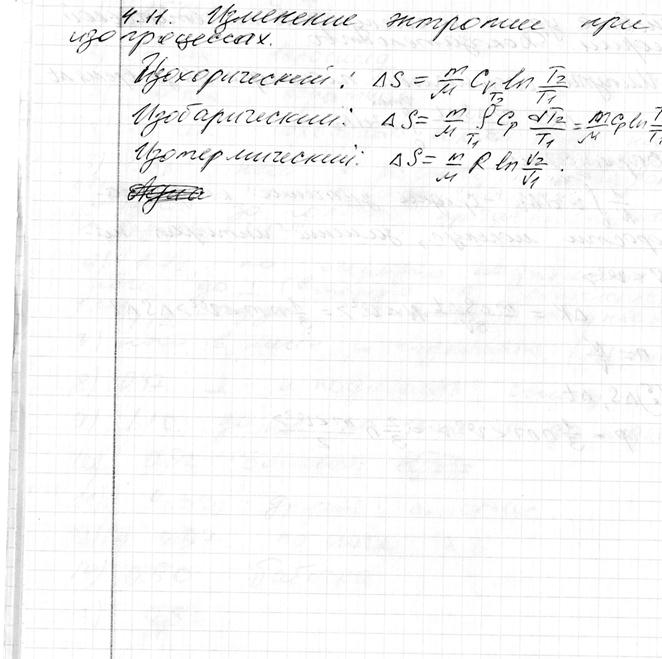 4.11. Изменение энтропии при
изопроцессах.
Изохорический: ΔS = m/μ C_V ln T₂/T₁
Изобарический: ΔS = m/μ ∫_{T₁}^{T₂} C_p dT₂/T₁ = m/μ C_p ln T/T₁
Изотермический: ΔS = m/μ R ln V₂/V₁.